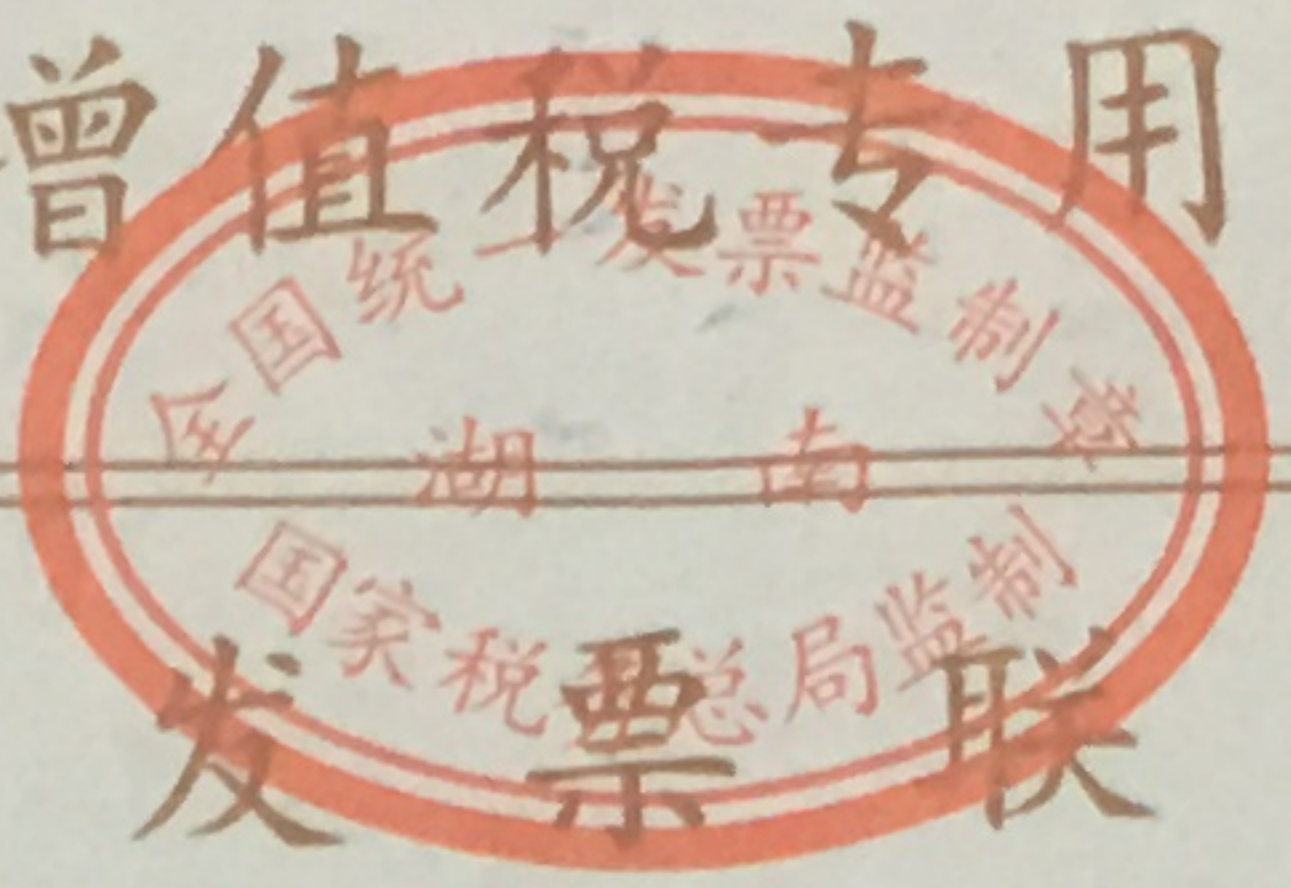 增值税专用
全国统一发票监制章
湖南
国家税务总局监制
发票联